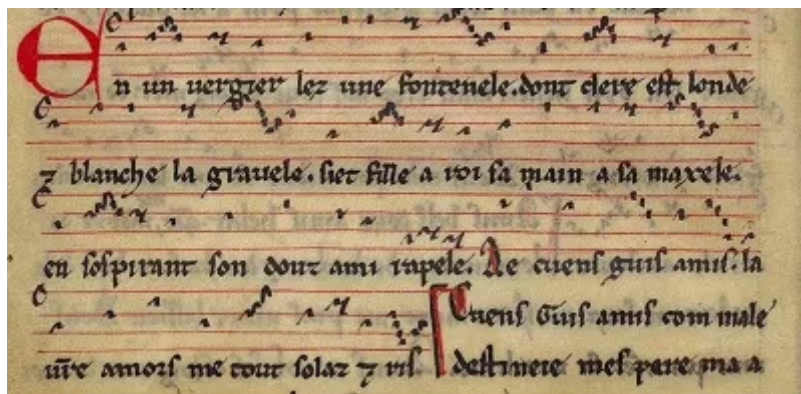 En un uergier lez une fontenele. dont clere est londe
⁊ blanche la grauele. siet fille a roi sa main a sa maxele.
en sospirant son douz ami rapele. Ae cuens guis amis. la
ur̄e amors me tout solaz ⁊ ris
Cuens Guis amis com male
destineie mes pere ma a